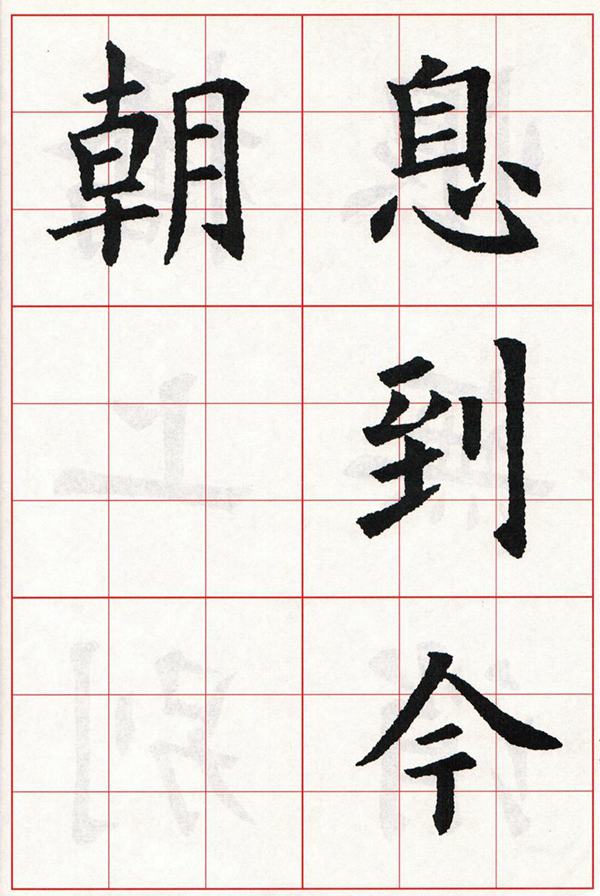 息到今
朝